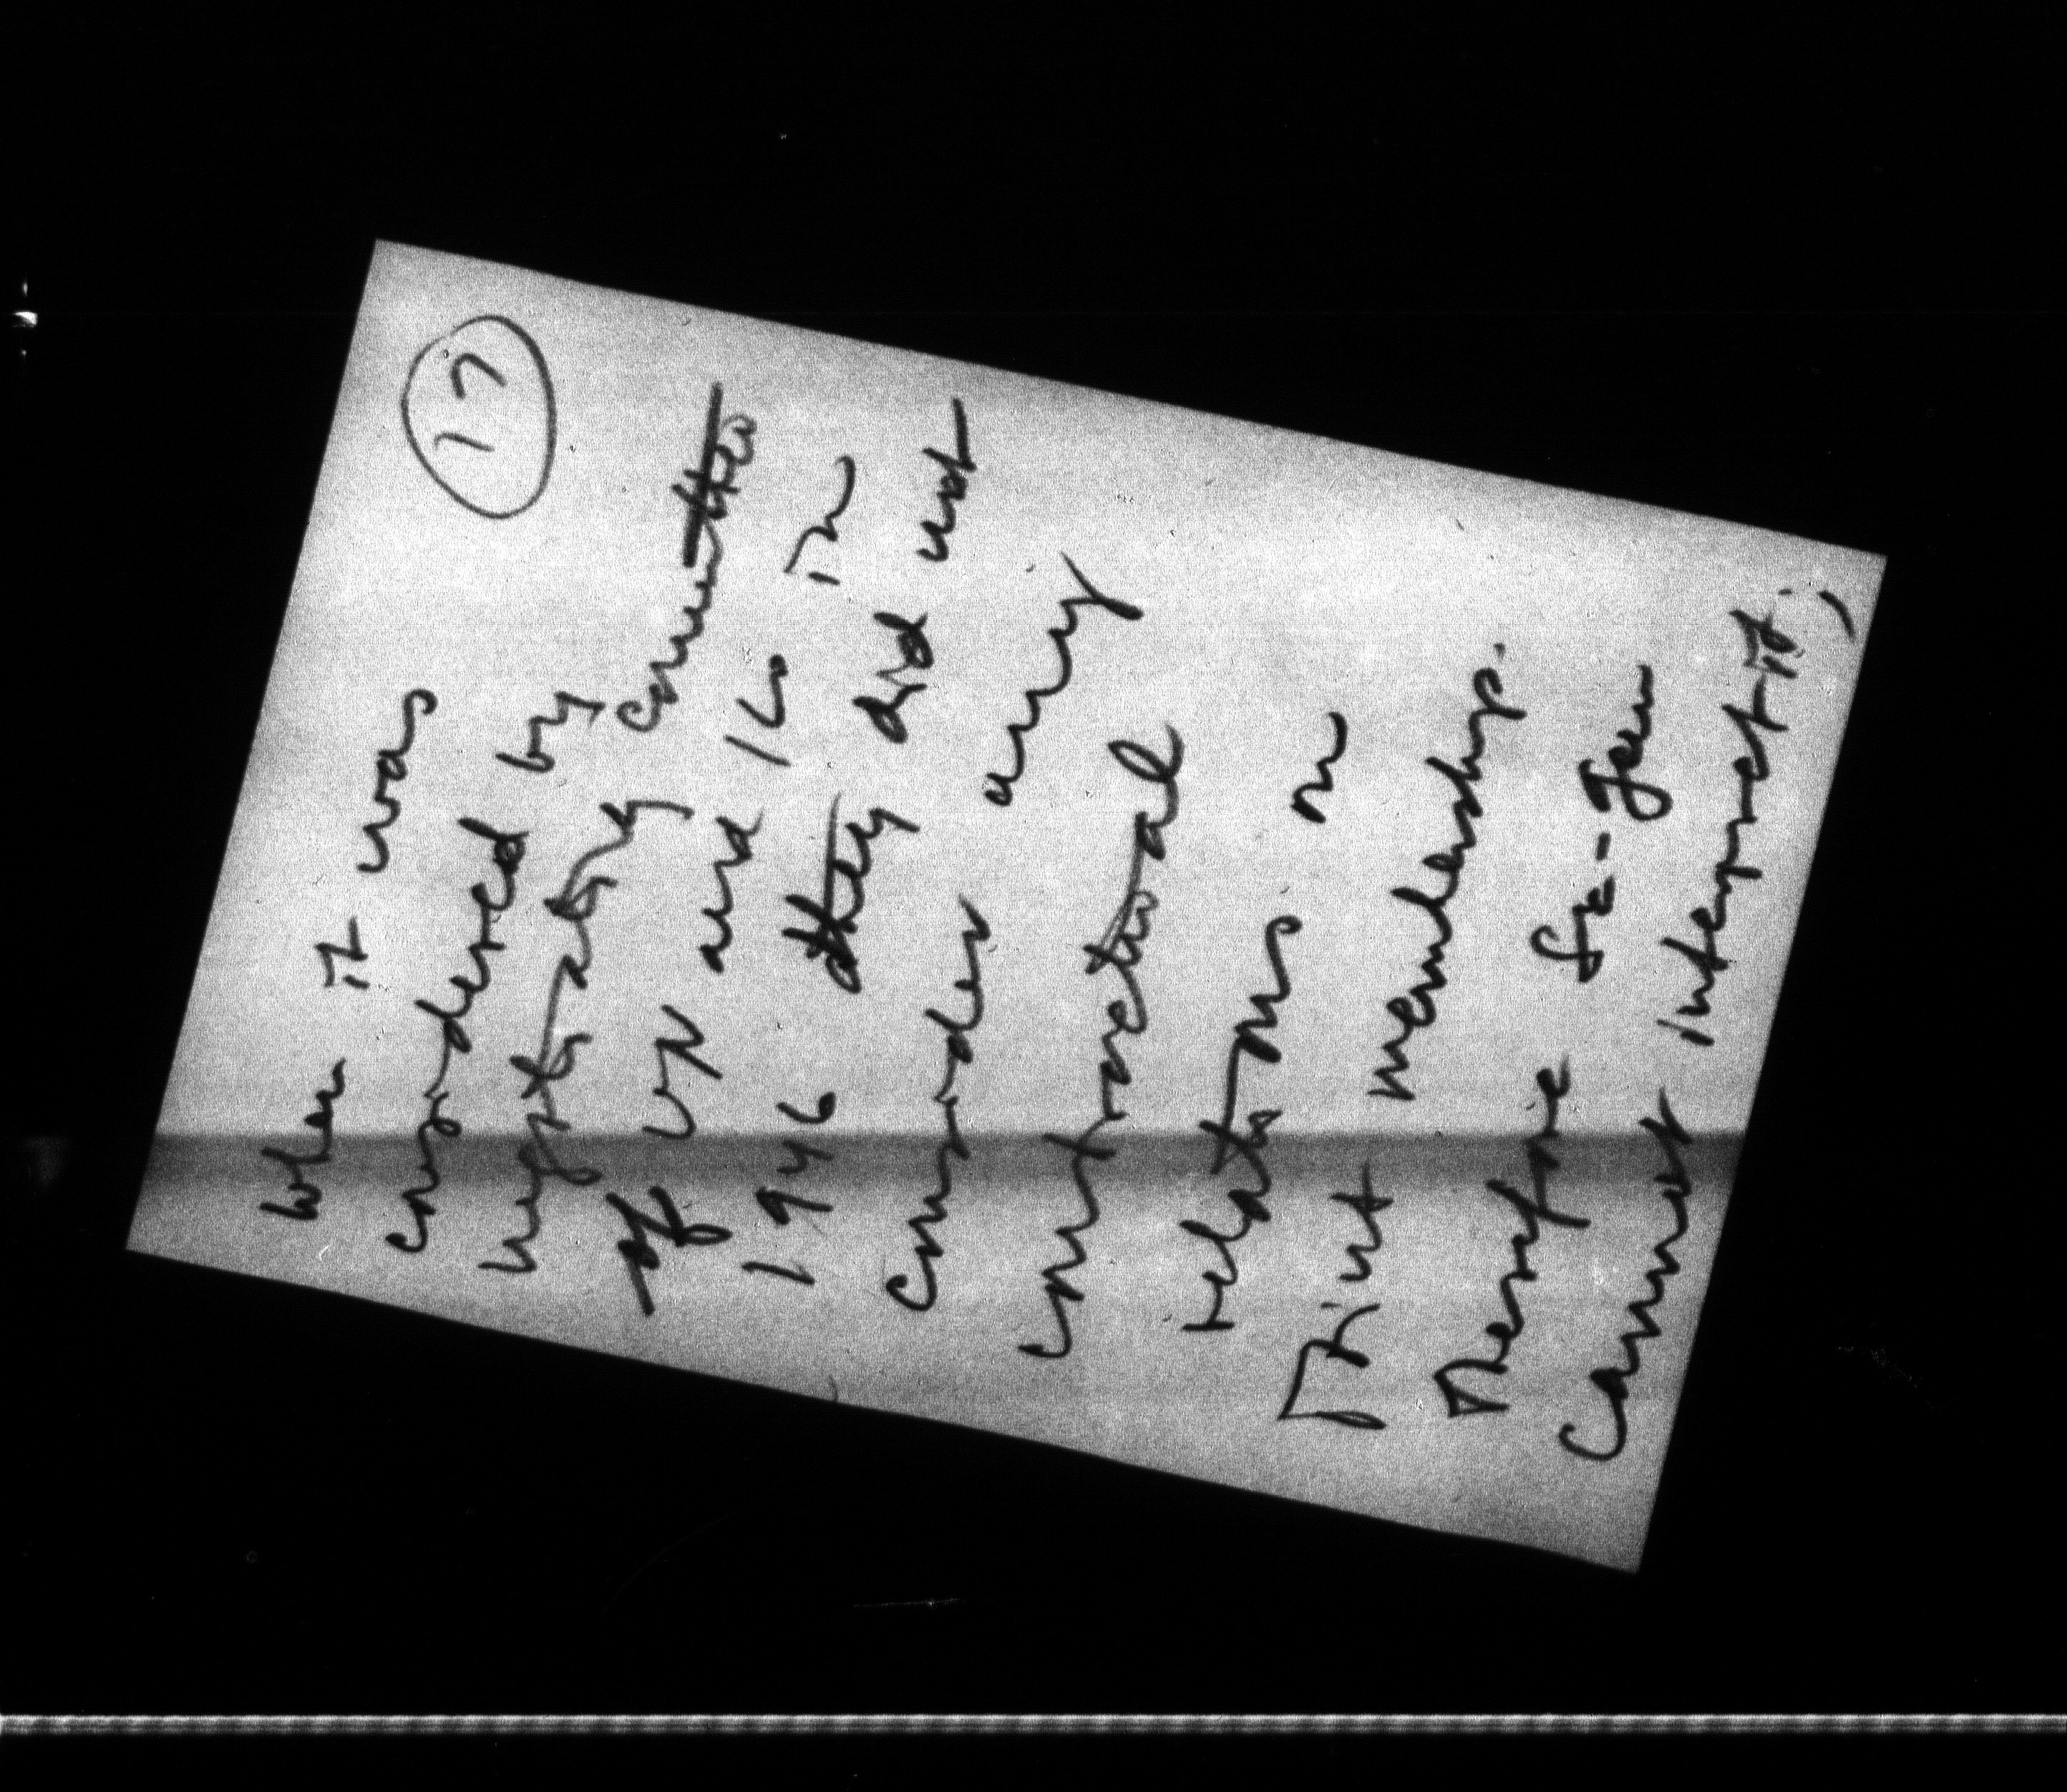 17
When it was
considered by
negotiating committee
of UN and ILO in
1946 they did not
consider any
contractual
relations on
Joint membership.
Therefore Se-Gen
Cannot interpret it;